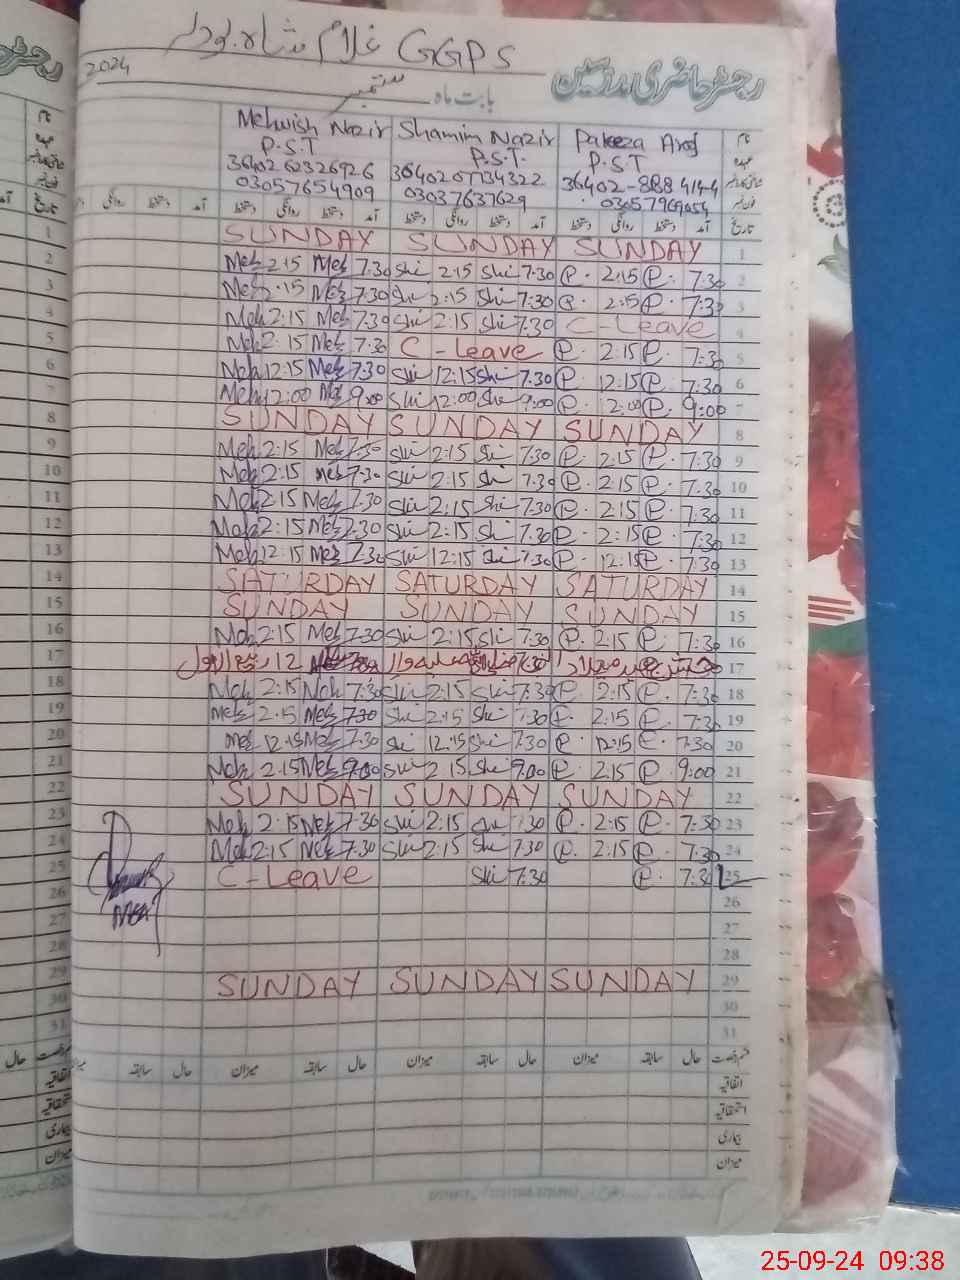 GGPS غلام شاہ
رجسٹر حاضری مدرسین
2024
بابت ماہ ستمبر
Mehwish Nazir Shamim Nazir Pakeeza Aref نام
P.S.T P.S.T. P.S.T عہدہ
3640262326926 3640207134322 36402-888414-4
03057654909 03037637629 فون نمبر
آمد دستخط روانگی دستخط آمد دستخط روانگی دستخط آمد دستخط روانگی دستخط تاریخ
1 SUNDAY SUNDAY SUNDAY 1
2 Meh 2:15 Meh 7:30 Shi 2:15 Shi 7:30 P. 2:15 P. 7:30 2
3 Meh 2:15 Meh 7:30 Shi 2:15 Shi 7:30 P. 2:15 P. 7:30 3
4 Meh 2:15 Meh 7:30 Shi 2:15 Shi 7:30 C-Leave 4
5 Meh 2:15 Meh 7:30 C-Leave P. 2:15 P. 7:30 5
6 Meh 12:15 Meh 7:30 Shi 12:15 Shi 7:30 P. 12:15 P. 7:30 6
7 Meh 12:00 Meh 9:00 Shi 12:00 Shi 9:00 P. 12:00 P. 9:00 7
8 SUNDAY SUNDAY SUNDAY 8
9 Meh 2:15 Meh 7:30 Shi 2:15 Shi 7:30 P. 2:15 P. 7:30 9
10 Meh 2:15 Meh 7:30 Shi 2:15 Shi 7:30 P. 2:15 P. 7:30 10
11 Meh 2:15 Meh 7:30 Shi 2:15 Shi 7:30 P. 2:15 P. 7:30 11
12 Meh 2:15 Meh 7:30 Shi 2:15 Shi 7:30 P. 2:15 P. 7:30 12
13 Meh 12:15 Meh 7:30 Shi 12:15 Shi 7:30 P. 12:15 P. 7:30 13
14 SATURDAY SATURDAY SATURDAY 14
15 SUNDAY SUNDAY SUNDAY 15
16 Meh 2:15 Meh 7:30 Shi 2:15 Shi 7:30 P. 2:15 P. 7:30 16
17 جشن عید میلاد 12 ربیع الاول 17
18 Meh 2:15 Meh 7:30 Shi 2:15 Shi 7:30 P. 2:15 P. 7:30 18
19 Meh 2:15 Meh 7:30 Shi 2:15 Shi 7:30 P. 2:15 P. 7:30 19
20 Meh 12:15 Meh 7:30 Shi 12:15 Shi 7:30 P. 12:15 P. 7:30 20
21 Meh 2:15 Meh 9:00 Shi 2:15 Shi 9:00 P. 2:15 P. 9:00 21
22 SUNDAY SUNDAY SUNDAY 22
23 Meh 2:15 Meh 7:30 Shi 2:15 Shi 7:30 P. 2:15 P. 7:30 23
24 Meh 2:15 Meh 7:30 Shi 2:15 Shi 7:30 P. 2:15 P. 7:30 24
25 C-Leave Shi 7:30 P. 7:30 25
26 26
27 27
28 28
29 SUNDAY SUNDAY SUNDAY 29
30 30
31 31
حال سابقہ میزان حال سابقہ میزان حال سابقہ
اتفاقیہ
استحقاقیہ
بیماری
میزان
25-09-24 09:38